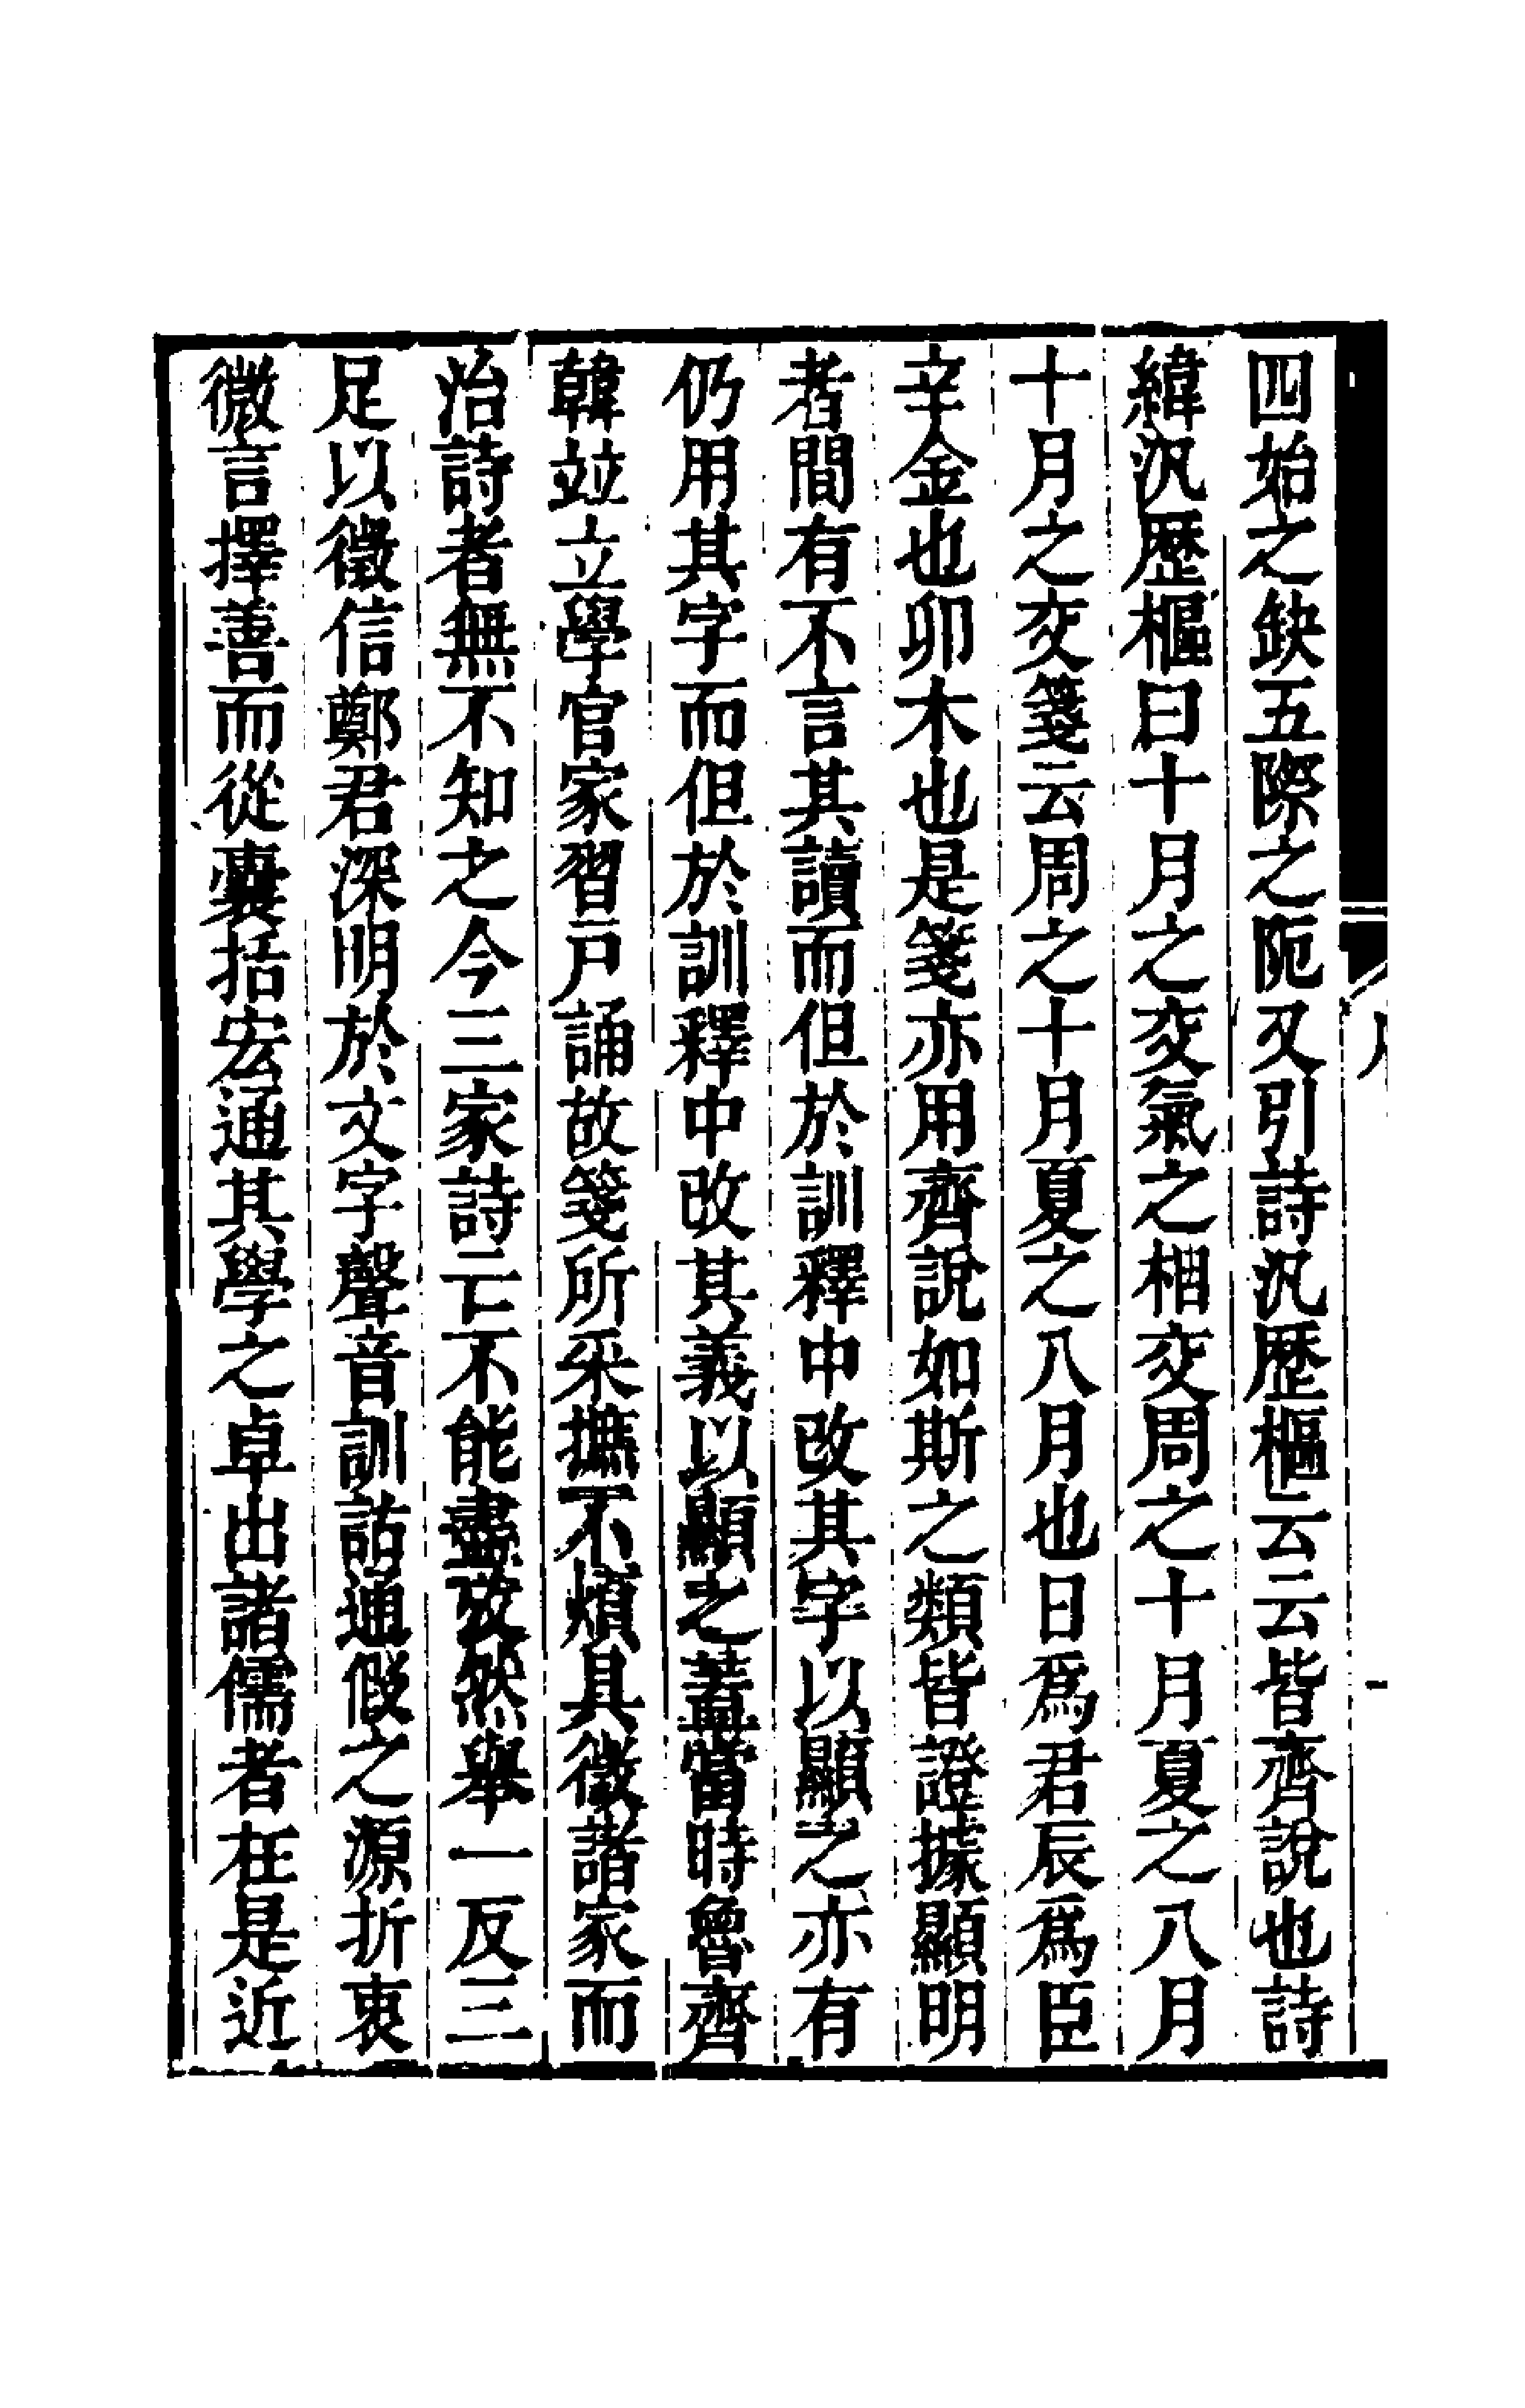 四始之缺五際之阨又引詩汎歷樞云云皆齊說也詩
緯汎歷樞曰十月之交氣之相交周之十月夏之八月
十月之交箋云周之十月夏之八月也日爲君辰爲臣
辛金也卯木也是箋亦用齊說如斯之類皆證據顯明
者間有不言其讀而但於訓釋中改其字以顯之亦有
仍用其字而但於訓釋中改其義以顯之蓋當時魯齊
韓竝立學官家習戸誦故箋所采摭不煩具徵諸家而
治詩者無不知之今三家詩亡不能盡攷然舉一反三
足以徵信鄭君深明於文字聲音訓詁通假之源折衷
微言擇善而從囊括宏通其學之卓出諸儒者在是近